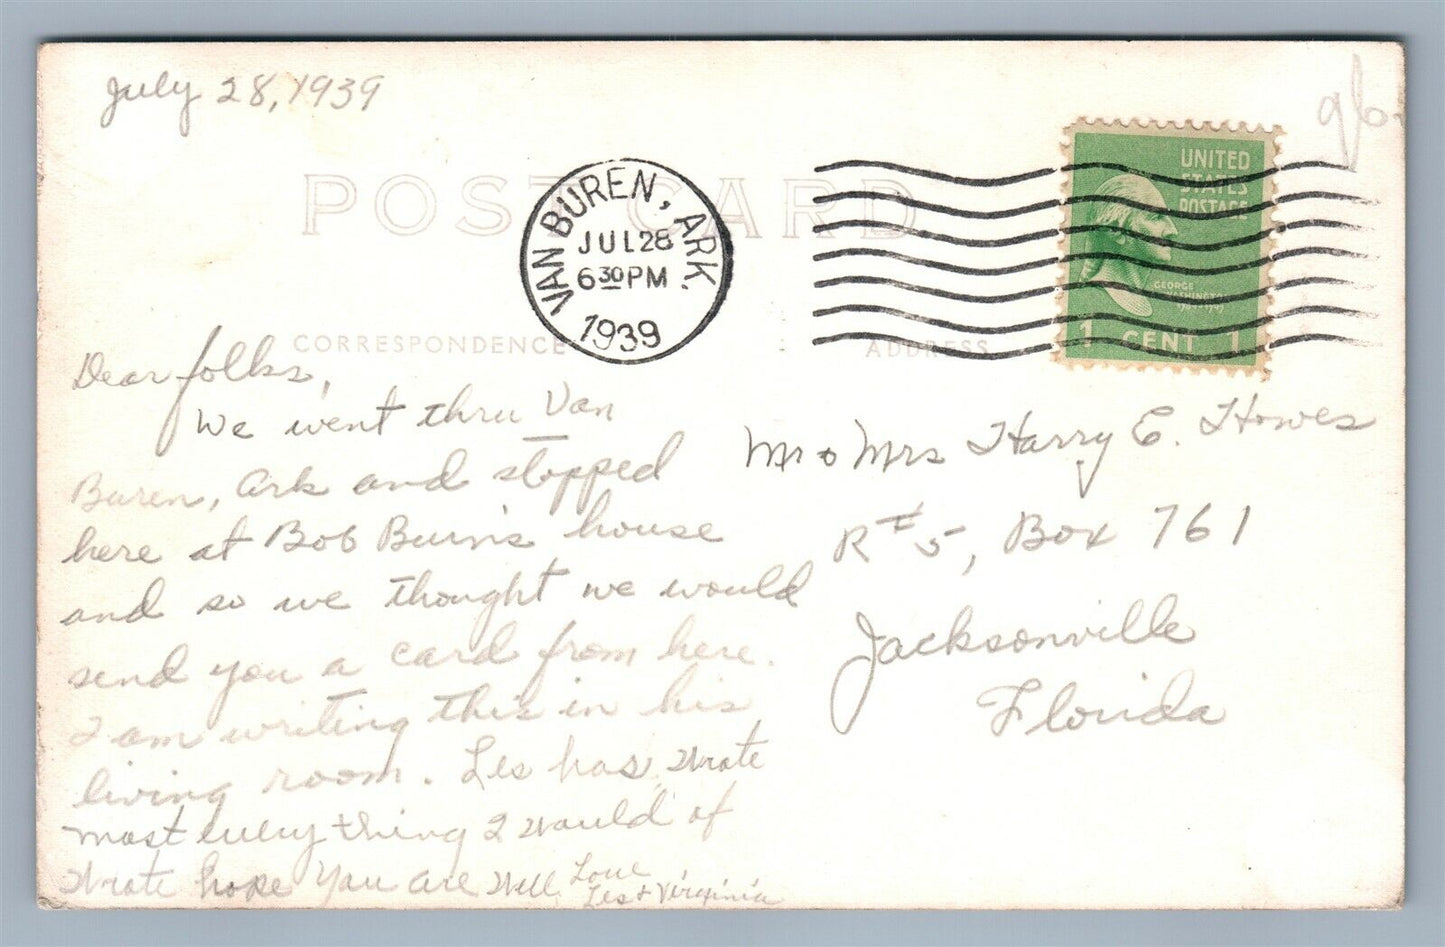 July 28, 1939
POST CARD
VAN BUREN, ARK.
JUL 28
6 30 PM
1939
UNITED
STATES
POSTAGE
GEORGE
WASHINGTON
1 CENT 1
CORRESPONDENCE
ADDRESS
Dear folks,
We went thru Van
Buren, Ark and stopped
here at Bob Burns house
and so we thought we would
send you a card from here.
I am writing this in his
living room. Les has wrote
most every thing I would of
wrote hope you are well Love
Les + Virginia
Mr & Mrs Harry E. Howes
R#5, Box 761
Jacksonville
Florida